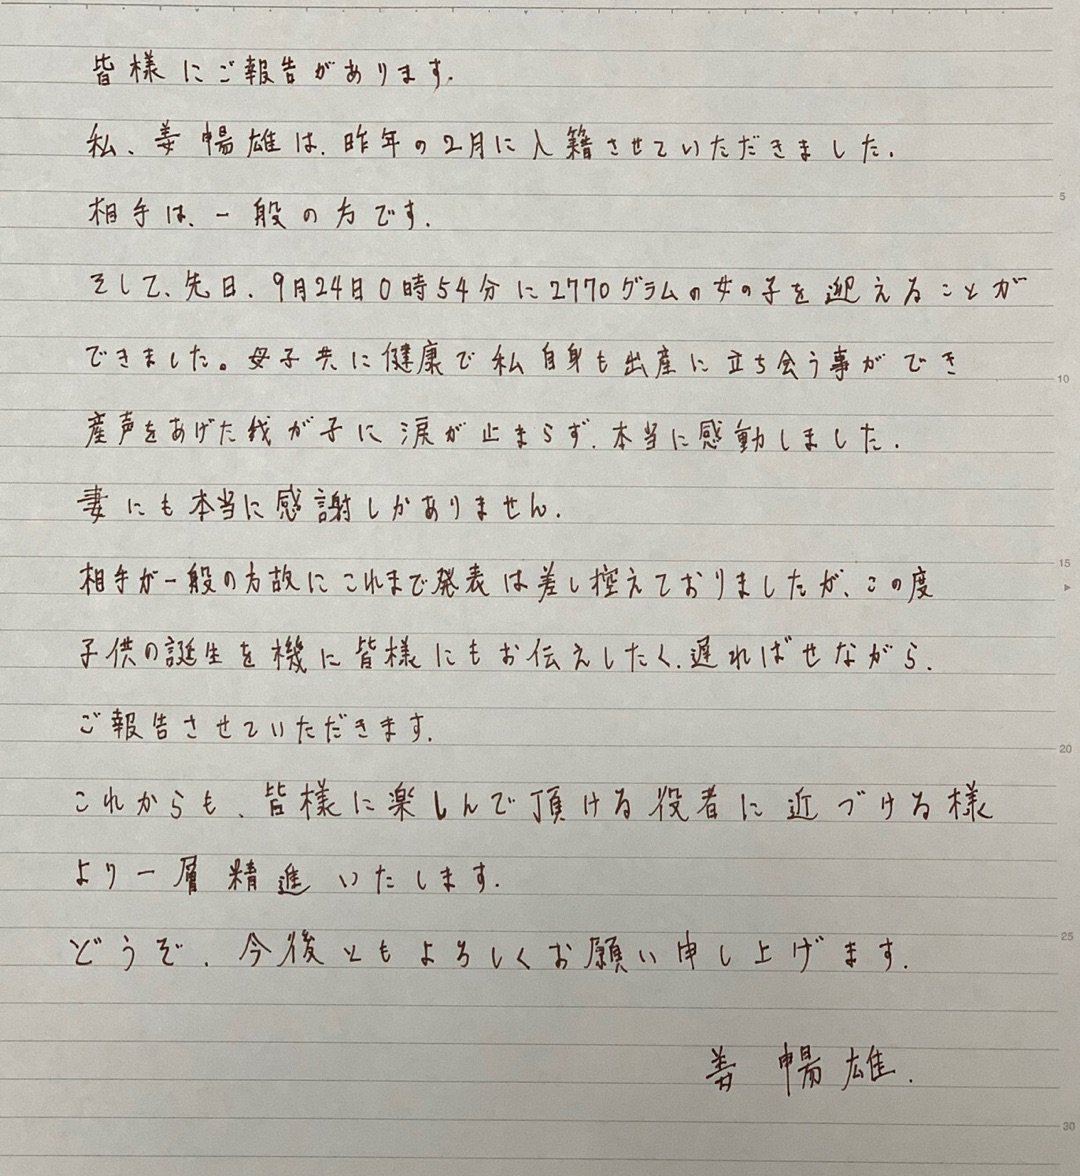 皆様にご報告があります。
私、姜 暢雄は、昨年の2月に入籍させていただきました。
相手は、一般の方です。
そして、先日、9月24日0時54分に2770グラムの女の子を迎えることが
できました。母子共に健康で私自身も出産に立ち会う事ができ
産声をあげた我が子に涙が止まらず、本当に感動しました。
妻にも本当に感謝しかありません。
相手が一般の方故にこれまで発表は差し控えておりましたが、この度
子供の誕生を機に皆様にもお伝えしたく、遅ればせながら、
ご報告させていただきます。
これからも、皆様に楽しんで頂ける役者に近づける様
より一層精進いたします。
どうぞ、今後ともよろしくお願い申し上げます。
姜 暢雄.
5
10
15
20
25
30